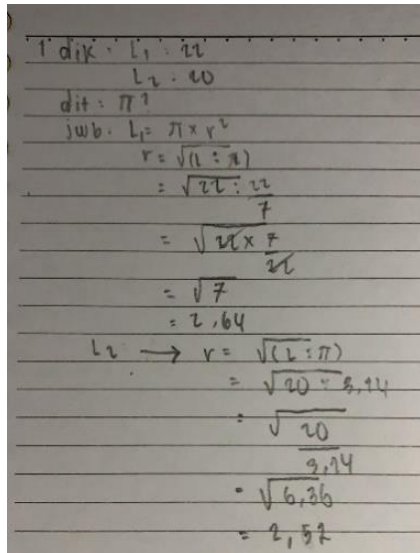 1 dik : L₁ : 22
L₂ : 20
dit : π ?
jwb . L₁ = π × r²
r = √(L : π)
= √22 : 22/7
= √22 × 7/22
= √7
= 2,64
L₂ → r = √(L : π)
= √20 : 3,14
= √20/3,14
= √6,36
= 2,52